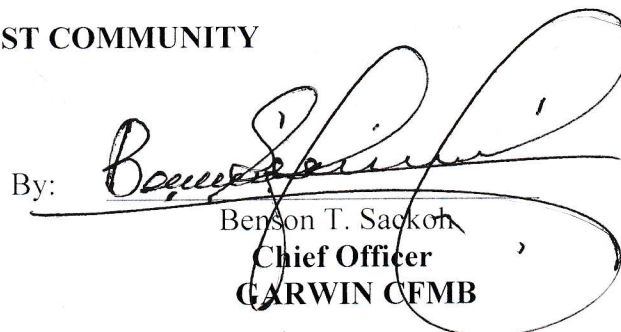 ST COMMUNITY
By:
Benson T. Sackoh
Chief Officer
GARWIN CFMB